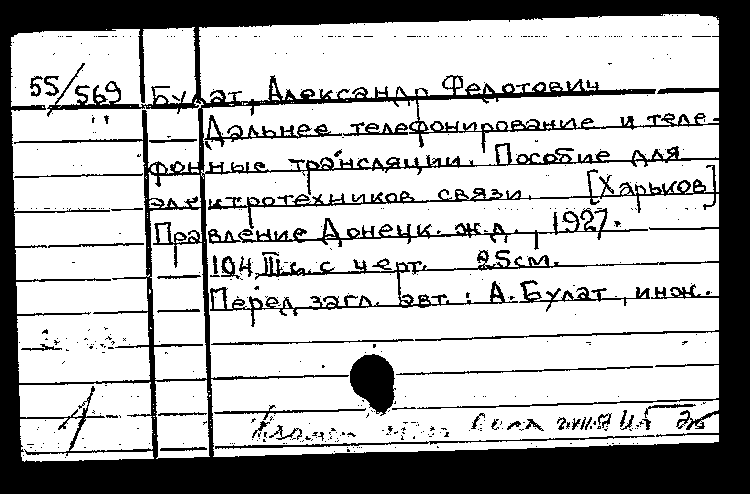 55/569 Булат, Александр Федотович
Дальнее телефонирование и теле-
фонные трансляции. Пособие для
электротехников связи. [Харьков]
Правление Донецк. ж.д., 1927.
104, III с. с черт. 25 см.
Перед загл. авт.: А. Булат, инж.